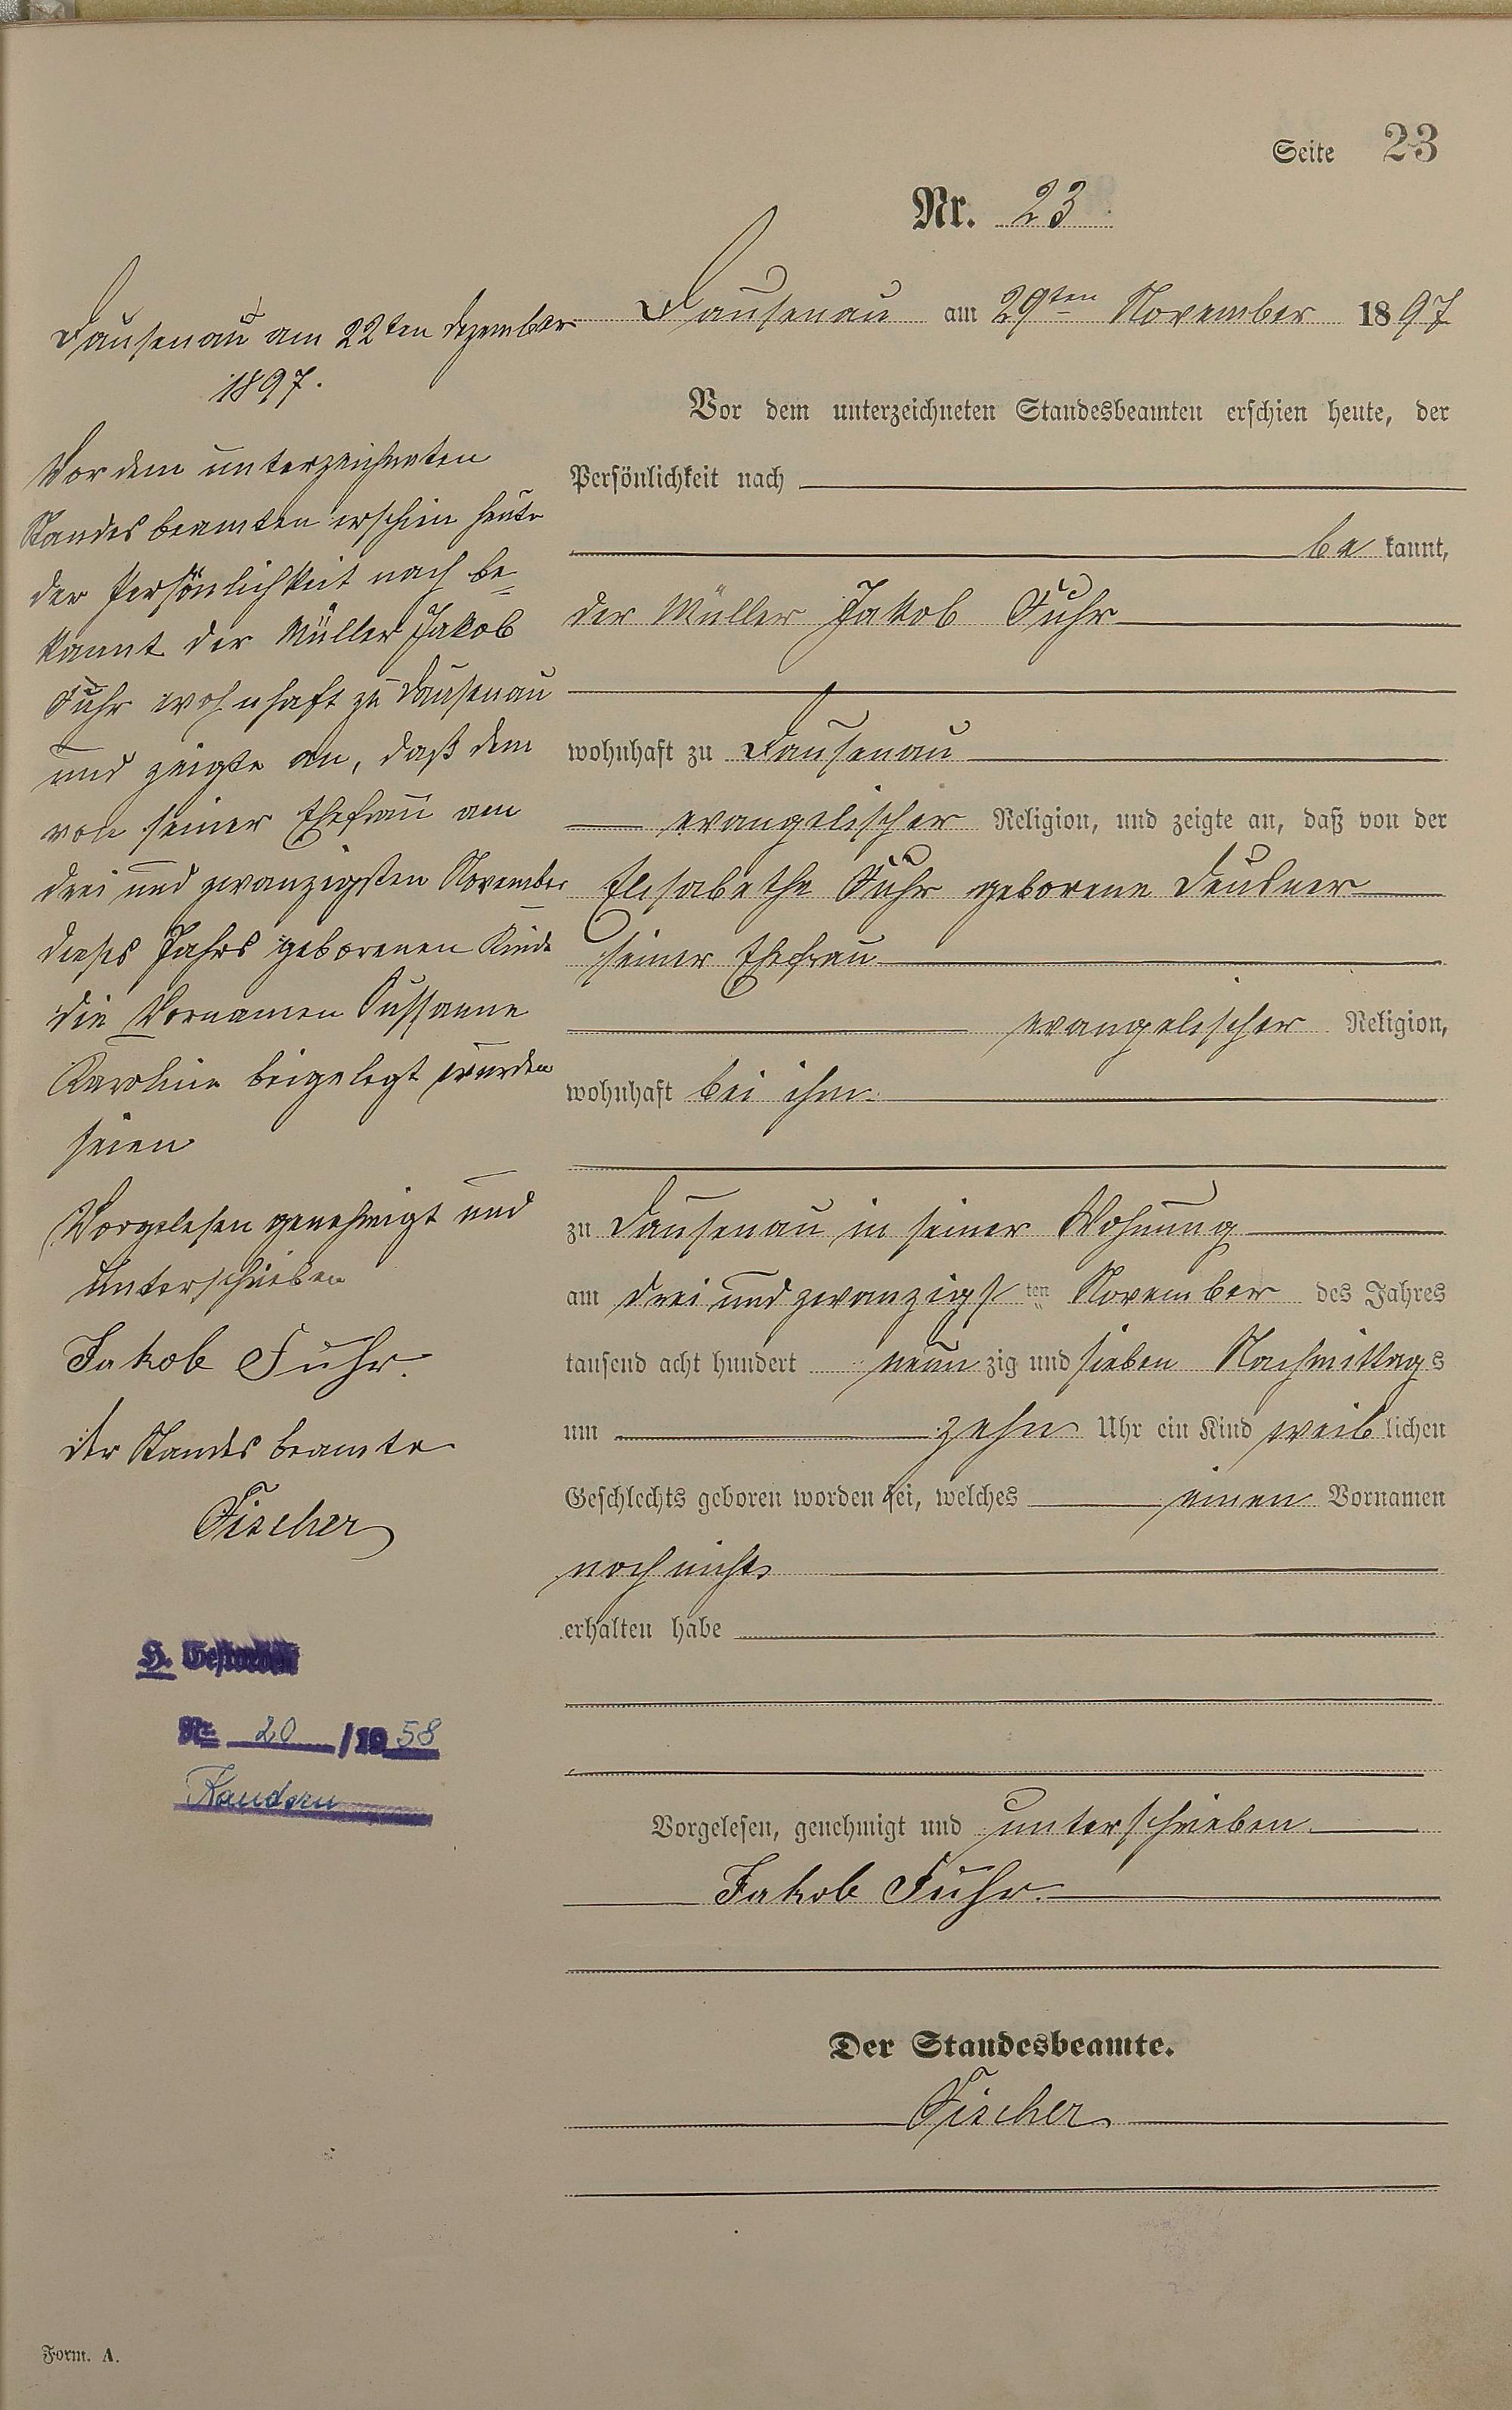 Seite 23
Nr. 23
Dausenau am 29ten November 1897
Vor dem unterzeichneten Standesbeamten erschien heute, der
Persönlichkeit nach
be kannt,
der Müller Jakob Fuhr
wohnhaft zu Dausenau
evangelischer Religion, und zeigte an, daß von der
Elisabethe Fuhr geborene
seiner Ehefrau
evangelischer Religion,
wohnhaft bei ihm
zu Dausenau in seiner Wohnung
am drei und zwanzigsten November des Jahres
tausend acht hundert neunzig und sieben Nachmittags
um zehn Uhr ein Kind weiblichen
Geschlechts geboren worden sei, welches einen Vornamen
noch nicht
erhalten habe
Vorgelesen, genehmigt und unterschrieben
Jakob Fuhr.
Der Standesbeamte.
Fischer
Dausenau am 22ten Dezember
1897.
Vor dem unterzeichneten
Standesbeamten erschien heute
der Persönlichkeit nach be=
kannt der Müller Jakob
Fuhr wohnhaft zu Dausenau
und zeigte an, daß dem
von seiner Ehefrau am
drei und zwanzigsten November
dieses Jahrs geborenen Kinde
die Vornamen Sussanne
Karoline beigelegt wurden
seien
Vorgelesen genehmigt und
unterschrieben
Jakob Fuhr.
der Standesbeamte
Fischer
H. Gestorben
Nr. 20 /1958
Kandern
Form. A.